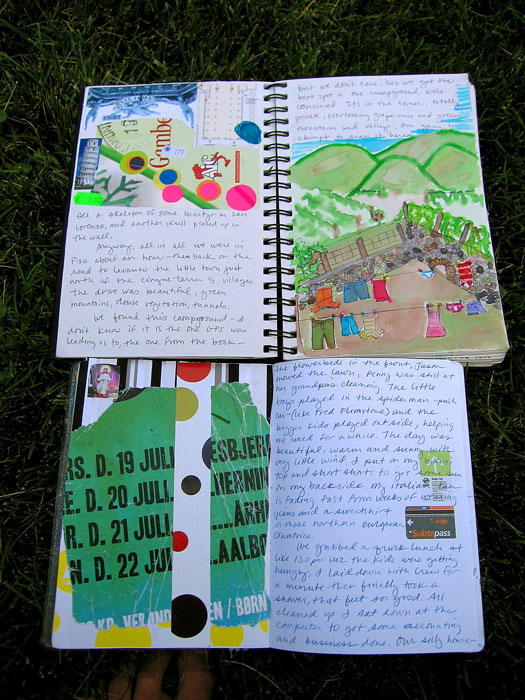 Gambe
179
€ 5.00
All a skeleton of some martyr in San
Lorenzo, and another skull placed up in
the wall.
Anyway, all in all we were in
Pisa about an hour - then back on the
road to Levanto the little town just
north of the Cinque Terre 5 villages.
The drive was beautiful, green
mountains, dense vegetation, tunnels.
We found this campground - I
don't know if it is the one GPS was
leading us to, the one from the book -
but we don't care, cuz we got the
best spot in the campground, we're
convinced. Its in the corner, totally
private, overlooking grape vines and green
mountains and valley. I'm going to
attempt to draw it here -
RS. D. 19 JULI ESBJERG
E. D. 20 JULI HERNING
R. D. 21 JULI ....ARH
N. D. 22 JUL ...AALBO
KR. VERAND EN / BØRN
the flowerbeds in the front, Jason
mowed the lawn, Penny was still at
her grandpas cleaning. The little
boys played in the spiderman push
car - (like Fred Flinstone) and the
bigger kids played outside, helping
me weed for a while. The day was
beautiful, warm and sunny with
very little wind. I put on my bikini
top and short shorts to get some sun
on my backside. My italian tan
is fading fast from weeks of wearing
jeans and a sweatshirt
in those northern european
countries.
1 way
Subtepass
We grabbed a quick lunch at
like 1:30 pm cuz the kids were getting
hungry. I laid down with Crew for
a minute then finally took a
shower, that felt so good. All
cleaned up I sat down at the
computer to get some accounting
and business done. Our silly home-